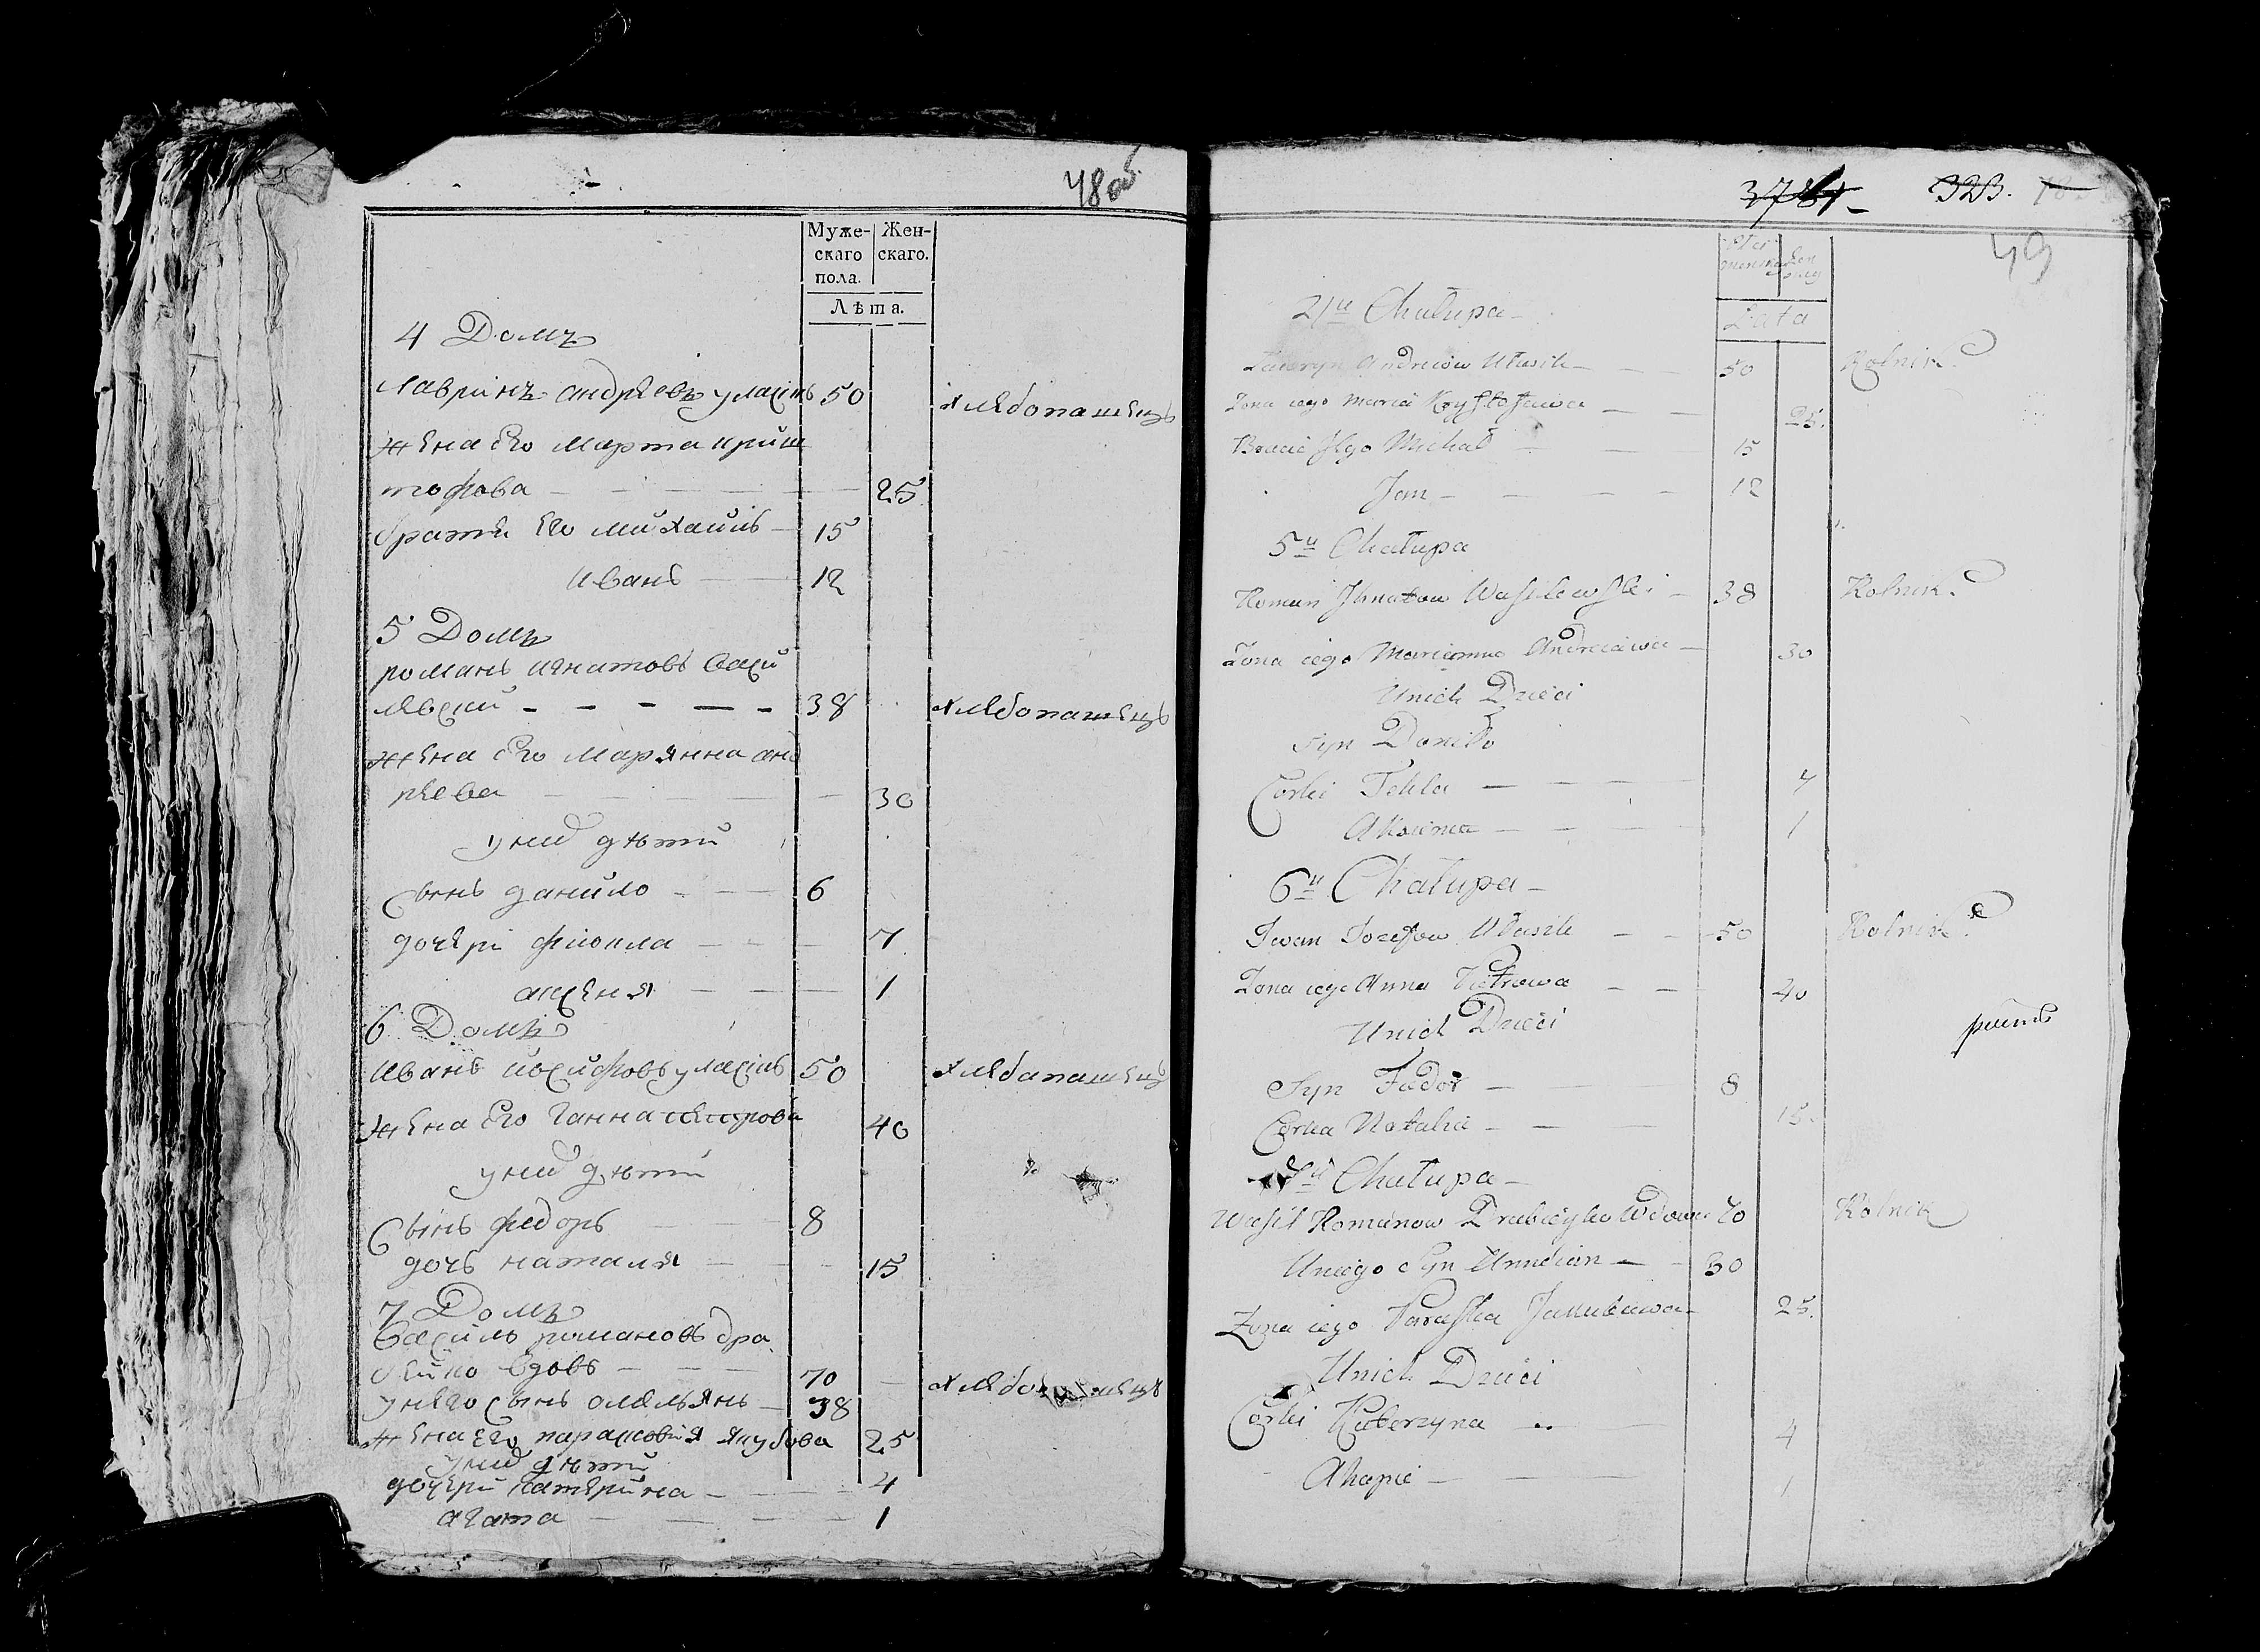 48об
Муже-
скаго
пола.
Жен-
скаго.
Лѣта.
4 Домъ
Лавринъ андрѣевъ уласикъ 50 хлѣбопашецъ
жена его марта криш
тофова — 25
братя его михаилъ — 15
иванъ — 12
5 Домъ
романъ игнатовъ васи
лѣвский — 38 хлѣбопашецъ
жена его марянна анд
рѣева — 30
уних дѣти
сынъ данило — 6
дочери фиокла — 7
аксеня — 1
6 Домъ
иванъ иосифовъ уласикъ 50 хлѣбапашецъ
жена его ганна петрова 40
уних дѣти
Сынъ федоръ — 8
дочь наталя — 15
7 Домъ
василь романовъ дра
бейко вдовъ — 70 — хлѣбопашецъ
унего сынъ омельянъ — 38
жена его парасковия якубова 25
уних дѣти
дочери катерина — 4
агата — 1
3781 323.
49
Lata
4ta Chałupa —
Ławryn Andreiow Ułasik — 50 Rolnik
Zona iego Marta Krysztofowa — 25.
Bracia Jego Michał — 15
Jan — 12
5ta Chałupa
Roman Ihnatow Wasilewski — 38 Rolnik
Zona iego Marianna Andreiewa — 30
Unich Dzieci
Syn Daniło
Corki Tekla — 7
Aksienia — 1
6ta Chałupa —
Iwan Iozefow Ułasik — 50 Rolnik
Zona iego Anna Piotrowa — 40
Unich Dzieci
Syn Fiador — 8
Corka Natalia — 15.
7ma Chałupa —
Wasil Romanow Drabieyko Wdowiec 70 Rolnik
Uniego Syn — 30
Zona iego Paraska Jakubowa — 25.
Unich Dzieci
Corki Katerzyna — 4
Ahapia — 1